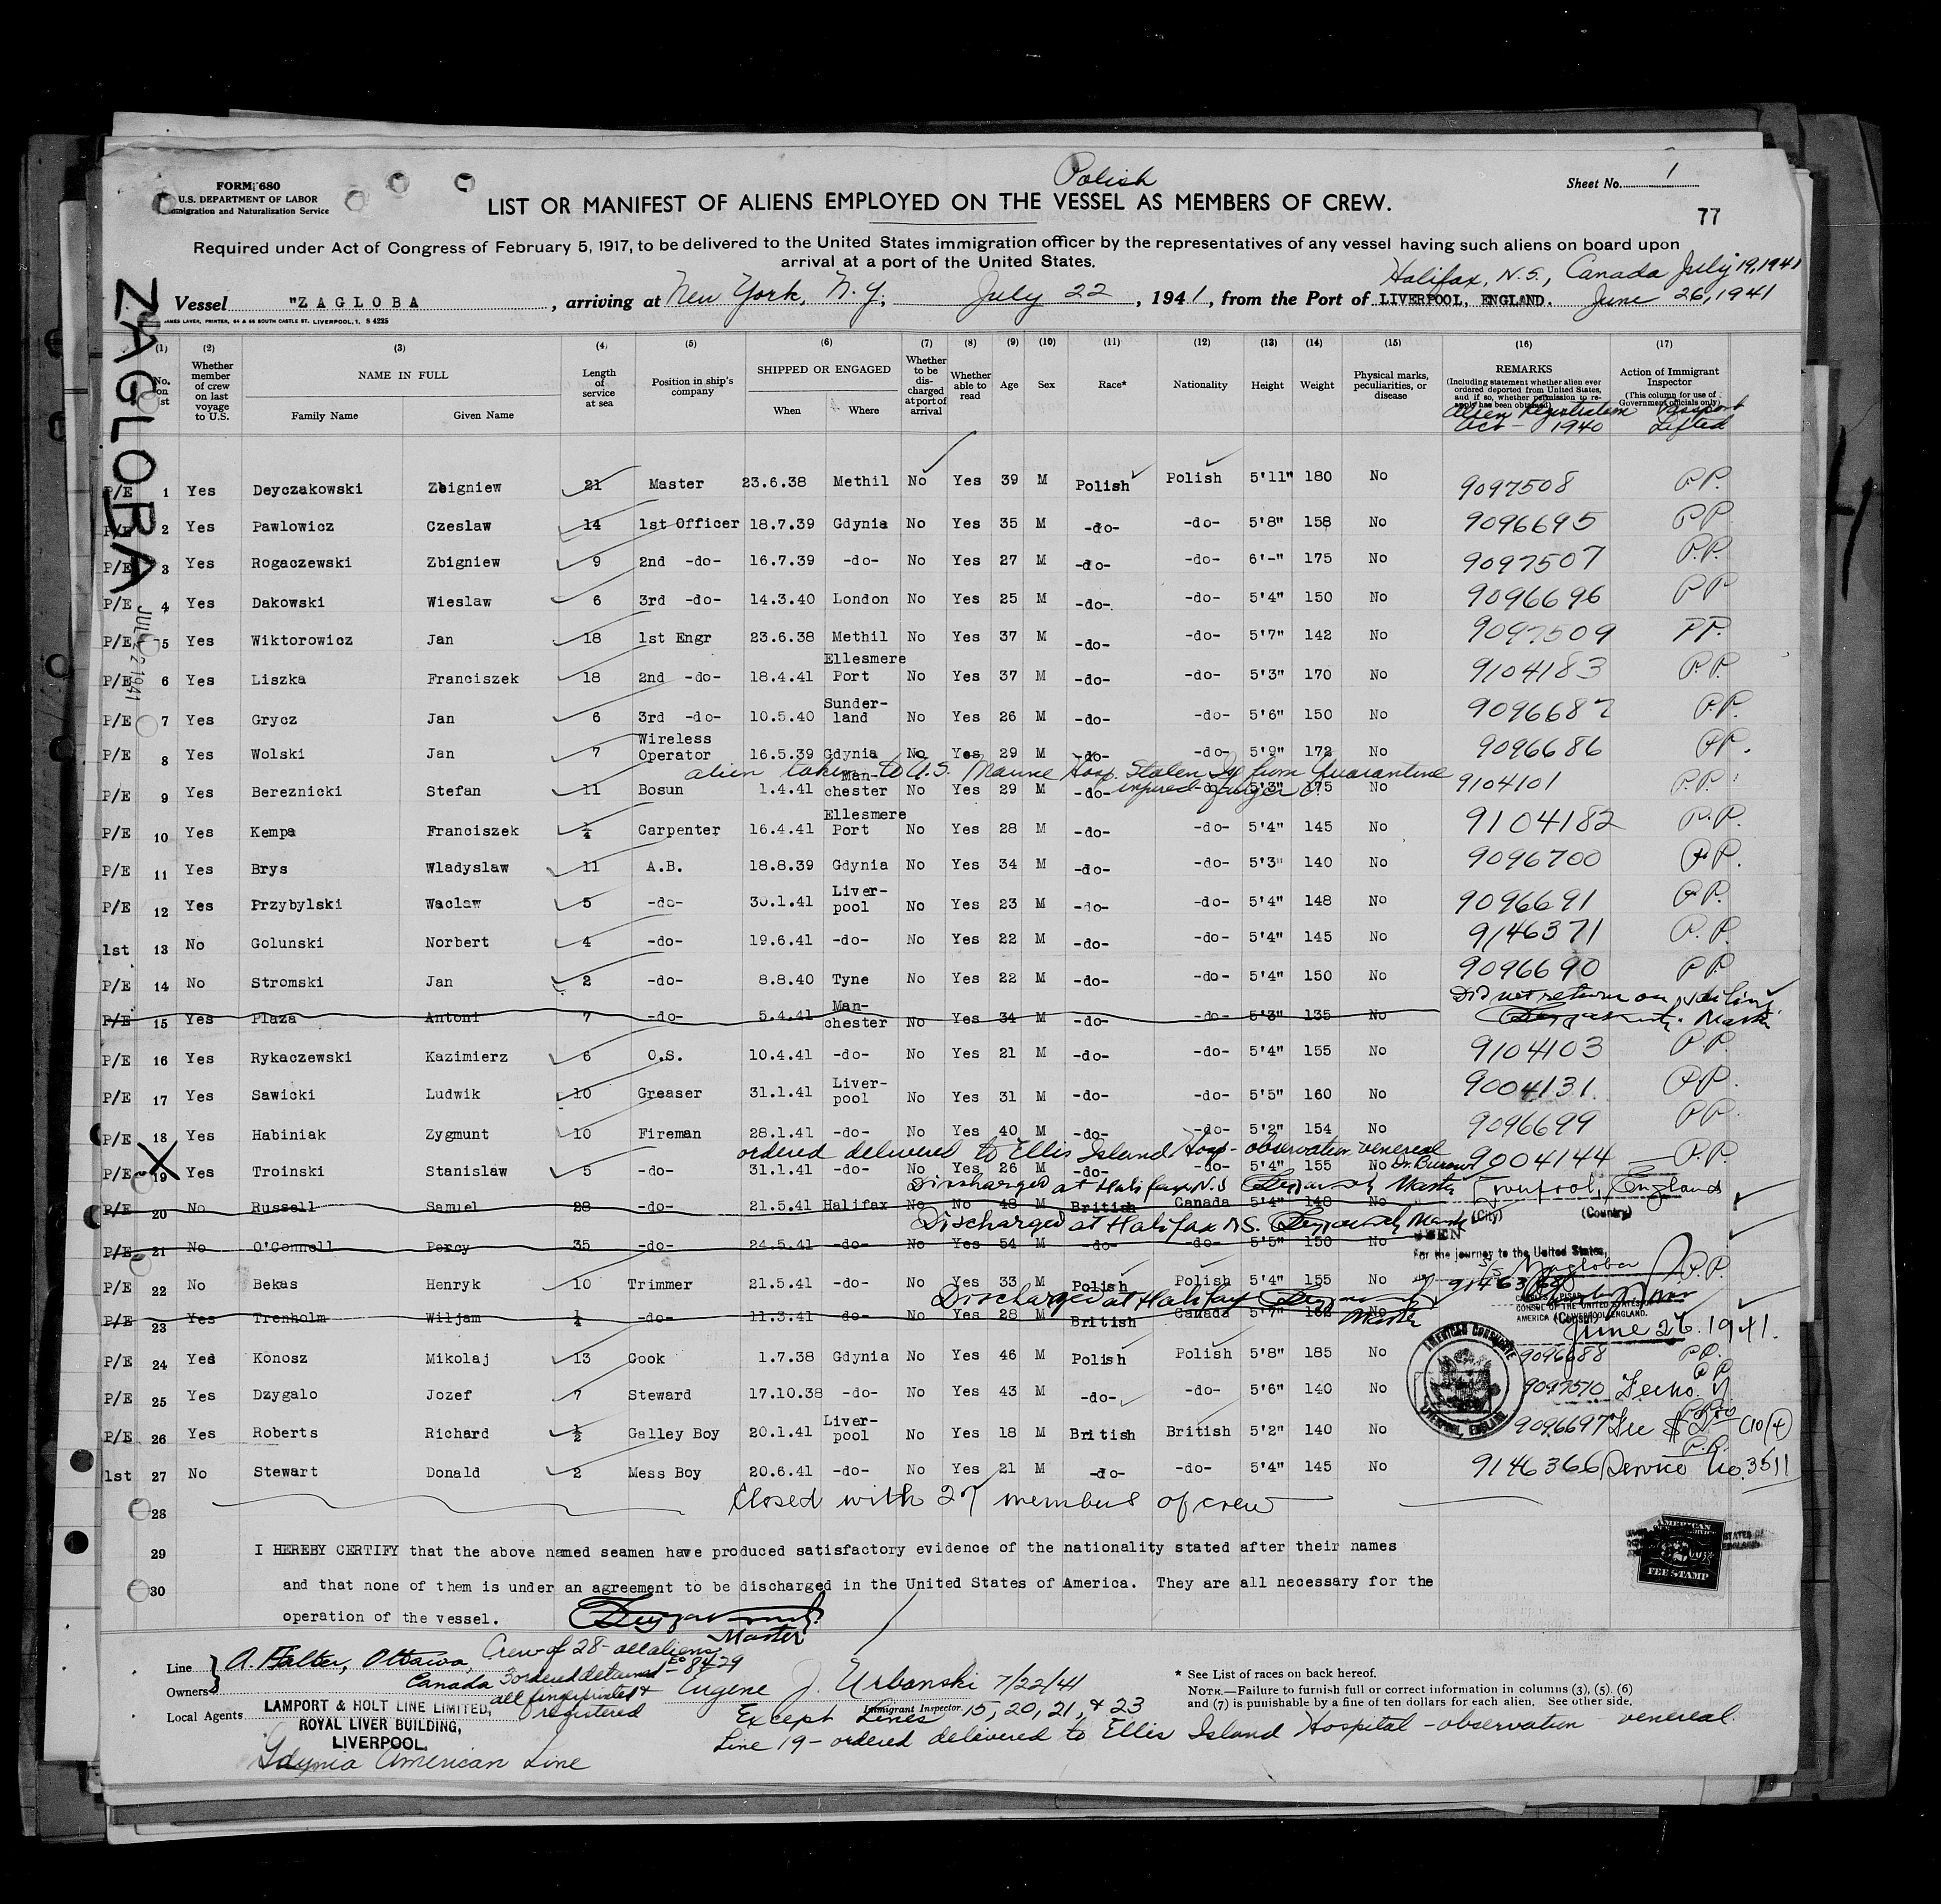 Polish
Sheet No. 1
FORM 680
U.S. DEPARTMENT OF LABOR
Immigration and Naturalization Service
LIST OR MANIFEST OF ALIENS EMPLOYED ON THE VESSEL AS MEMBERS OF CREW.
77
Required under Act of Congress of February 5, 1917, to be delivered to the United States immigration officer by the representatives of any vessel having such aliens on board upon
arrival at a port of the United States.
Halifax, N.S., Canada July 19, 1941
Vessel "ZAGLOBA, arriving at New York, N.Y., July 22, 1941, from the Port of LIVERPOOL, ENGLAND. June 26, 1941
JAMES LAVER, PRINTER, 64 & 66 SOUTH CASTLE ST. LIVERPOOL, 1. S 4225
ZAGLOBA
JUL 22 1941
(1) (2) (3) (4) (5) (6) (7) (8) (9) (10) (11) (12) (13) (14) (15) (16) (17)
No. on list
Whether member of crew on last voyage to U.S.
NAME IN FULL
Family Name
Given Name
Length of service at sea
Position in ship's company
SHIPPED OR ENGAGED
When
Where
Whether to be discharged at port of arrival
Whether able to read
Age
Sex
Race*
Nationality
Height
Weight
Physical marks, peculiarities, or disease
REMARKS
(Including statement whether alien ever ordered deported from United States, and if so, whether permission to reapply has been obtained)
Alien Registration Act - 1940
Action of Immigrant Inspector
(This column for use of Government officials only)
Passport Lifted
P/E 1 Yes Deyczakowski Zbigniew 21 Master 23.6.38 Methil No Yes 39 M Polish Polish 5'11" 180 No 9097508 P.P.
P/E 2 Yes Pawlowicz Czeslaw 14 1st Officer 18.7.39 Gdynia No Yes 35 M -do- -do- 5'8" 158 No 9096695 P.P.
P/E 3 Yes Rogaczewski Zbigniew 9 2nd -do- 16.7.39 -do- No Yes 27 M -do- -do- 6'-" 175 No 9097507 P.P.
P/E 4 Yes Dakowski Wieslaw 6 3rd -do- 14.3.40 London No Yes 25 M -do- -do- 5'4" 150 No 9096696 P.P.
P/E 5 Yes Wiktorowicz Jan 18 1st Engr 23.6.38 Methil No Yes 37 M -do- -do- 5'7" 142 No 9097509 P.P.
P/E 6 Yes Liszka Franciszek 18 2nd -do- 18.4.41 Ellesmere Port No Yes 37 M -do- -do- 5'3" 170 No 9104183 P.P.
P/E 7 Yes Grycz Jan 6 3rd -do- 10.5.40 Sunder-land No Yes 26 M -do- -do- 5'6" 150 No 9096687 P.P.
P/E 8 Yes Wolski Jan 7 Wireless Operator 16.5.39 Gdynia No Yes 29 M -do- -do- 5'9" 172 No 9096686 P.P.
alien taken to U.S. Marine Hosp. Staten Isl from Quarantine
injured finger
P/E 9 Yes Bereznicki Stefan 11 Bosun 1.4.41 Man-chester No Yes 29 M -do- -do- 5'3" 175 No 9104101 P.P.
P/E 10 Yes Kempa Franciszek 1/4 Carpenter 16.4.41 Ellesmere Port No Yes 28 M -do- -do- 5'4" 145 No 9104182 P.P.
P/E 11 Yes Brys Wladyslaw 11 A.B. 18.8.39 Gdynia No Yes 34 M -do- -do- 5'3" 140 No 9096700 P.P.
P/E 12 Yes Przybylski Waclaw 5 -do- 30.1.41 Liver-pool No Yes 23 M -do- -do- 5'4" 148 No 9096691 P.P.
1st 13 No Golunski Norbert 4 -do- 19.6.41 -do- No Yes 22 M -do- -do- 5'4" 145 No 9146371 P.P.
P/E 14 No Stromski Jan 2 -do- 8.8.40 Tyne No Yes 22 M -do- -do- 5'4" 150 No 9096690 P.P.
Did not return on sailing
P/E 15 Yes Plaza Antoni 7 -do- 5.4.41 Man-chester No Yes 34 M -do- -do- 5'3" 135 No Master
P/E 16 Yes Rykaczewski Kazimierz 6 O.S. 10.4.41 -do- No Yes 21 M -do- -do- 5'4" 155 No 9104103 P.P.
P/E 17 Yes Sawicki Ludwik 10 Greaser 31.1.41 Liver-pool No Yes 31 M -do- -do- 5'5" 160 No 9004131 P.P.
P/E 18 Yes Habiniak Zygmunt 10 Fireman 28.1.41 -do- No Yes 40 M -do- -do- 5'2" 154 No 9096699 P.P.
ordered delivered to Ellis Island Hosp - observation venereal
P/E 19 Yes Troinski Stanislaw 5 -do- 31.1.41 -do- No Yes 26 M -do- -do- 5'4" 155 No 9004144 P.P.
Discharged at Halifax N.S. Master
Liverpool, England
(City) (Country)
P/E 20 No Russell Samuel 28 -do- 21.5.41 Halifax No No 48 M British Canada 5'4" 148 No
Discharged at Halifax N.S. Master
SEEN
For the journey to the United States,
P/E 21 No O'Connell Percy 35 -do- 24.5.41 -do- No Yes 54 M -do- -do- 5'5" 150 No
S/S Zagloba
P/E 22 No Bekas Henryk 10 Trimmer 21.5.41 -do- No Yes 33 M Polish Polish 5'4" 155 No P.P.
Discharged at Halifax Master
CONSUL OF THE UNITED STATES OF
AMERICA AT LIVERPOOL, ENGLAND.
(Consul)
P/E 23 Yes Trenholm Wiljam 1/4 -do- 11.3.41 -do- No Yes 28 M British Canada 5'7" No
June 26, 1941.
P/E 24 Yes Konosz Mikolaj 13 Cook 1.7.38 Gdynia No Yes 46 M Polish Polish 5'8" 185 No 9096688 P.P.
AMERICAN CONSULATE
LIVERPOOL, ENGLAND
P/E 25 Yes Dzygalo Jozef 7 Steward 17.10.38 -do- No Yes 43 M -do- -do- 5'6" 140 No 9097510 P.P.
P/E 26 Yes Roberts Richard 1/2 Galley Boy 20.1.41 Liver-pool No Yes 18 M British British 5'2" 140 No 9096697 P.P.
1st 27 No Stewart Donald 2 Mess Boy 20.6.41 -do- No Yes 21 M -do- -do- 5'4" 145 No 9146366 P.P. Service No. 3511
28 Closed with 27 members of crew
29 I HEREBY CERTIFY that the above named seamen have produced satisfactory evidence of the nationality stated after their names
30 and that none of them is under an agreement to be discharged in the United States of America. They are all necessary for the
operation of the vessel.
Master
AMERICAN
FEE STAMP
Line
Owners
Local Agents
Ottawa, Canada
Crew of 28 - all aliens
3 ordered detained - EO 8429
all fingerprinted &
registered
LAMPORT & HOLT LINE LIMITED,
ROYAL LIVER BUILDING,
LIVERPOOL.
Gdynia American Line
Eugene J. Urbanski 7/22/41
Immigrant Inspector
Except Lines 15, 20, 21, & 23
Line 19 - ordered delivered to Ellis Island Hospital - observation venereal
* See List of races on back hereof.
NOTE.—Failure to furnish full or correct information in columns (3), (5), (6)
and (7) is punishable by a fine of ten dollars for each alien. See other side.